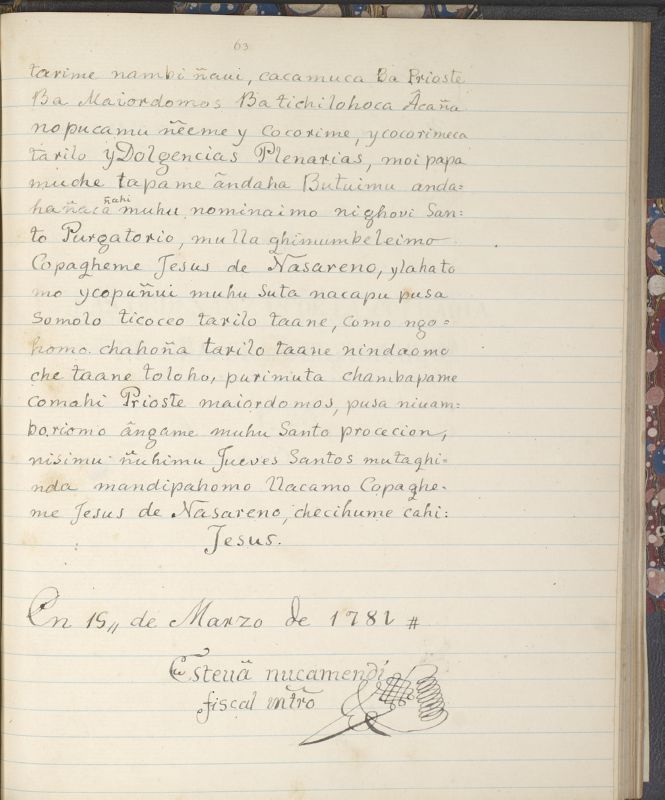 63
tarime nambi ñaui, cacamuca Ba Prioste
Ba Maiordomos Batichilohoca Âcaña
nopucamu ñeeme y cocorime, ycocorimeca
tarilo y Dolgencias Plenarias, moipapa
muche tapame ãndaha Butuimu anda=
ha ñaca ñahi muhu nominaimo nighovi San=
to Purgatorio, mulla ghimumbeleimo
Copagheme Jesus de Nasareno, ylahato
mo ycopuñui muhu Suta nacapu pusa
Somolo ticoceo tarilo taane, como ngo=
homo. chahoña tarilo taane nindaomo
che taane toloho, purimuta chambapame
comahi Prioste maiordomos, pusa niuam=
boriomo ângame muhu Santo procecion,
nisimu ñuhimu Jueves Santos mutaghi=
nda mandipahomo llacamo Copaghe=
me Jesus de Nasareno, checihume cahi:
Jesus.
En 15,, de Marzo de 1781 #
Esteuã nucamendi
fiscal mtro